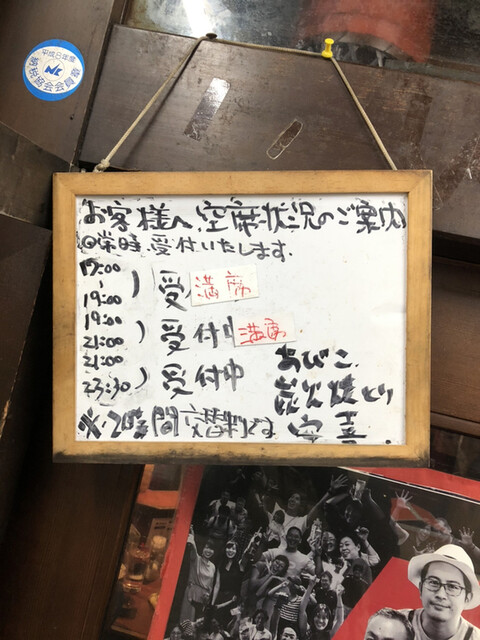 平成8年度
納税協会会員章
お客様へ空席状況のご案内
日時 受付いたします.
17:00
~
19:00
受 満席
19:00
~
21:00
受付中 満席
21:00
~
23:30
受付中
※2時間交替制です
あびこ
炭火焼とり
安喜